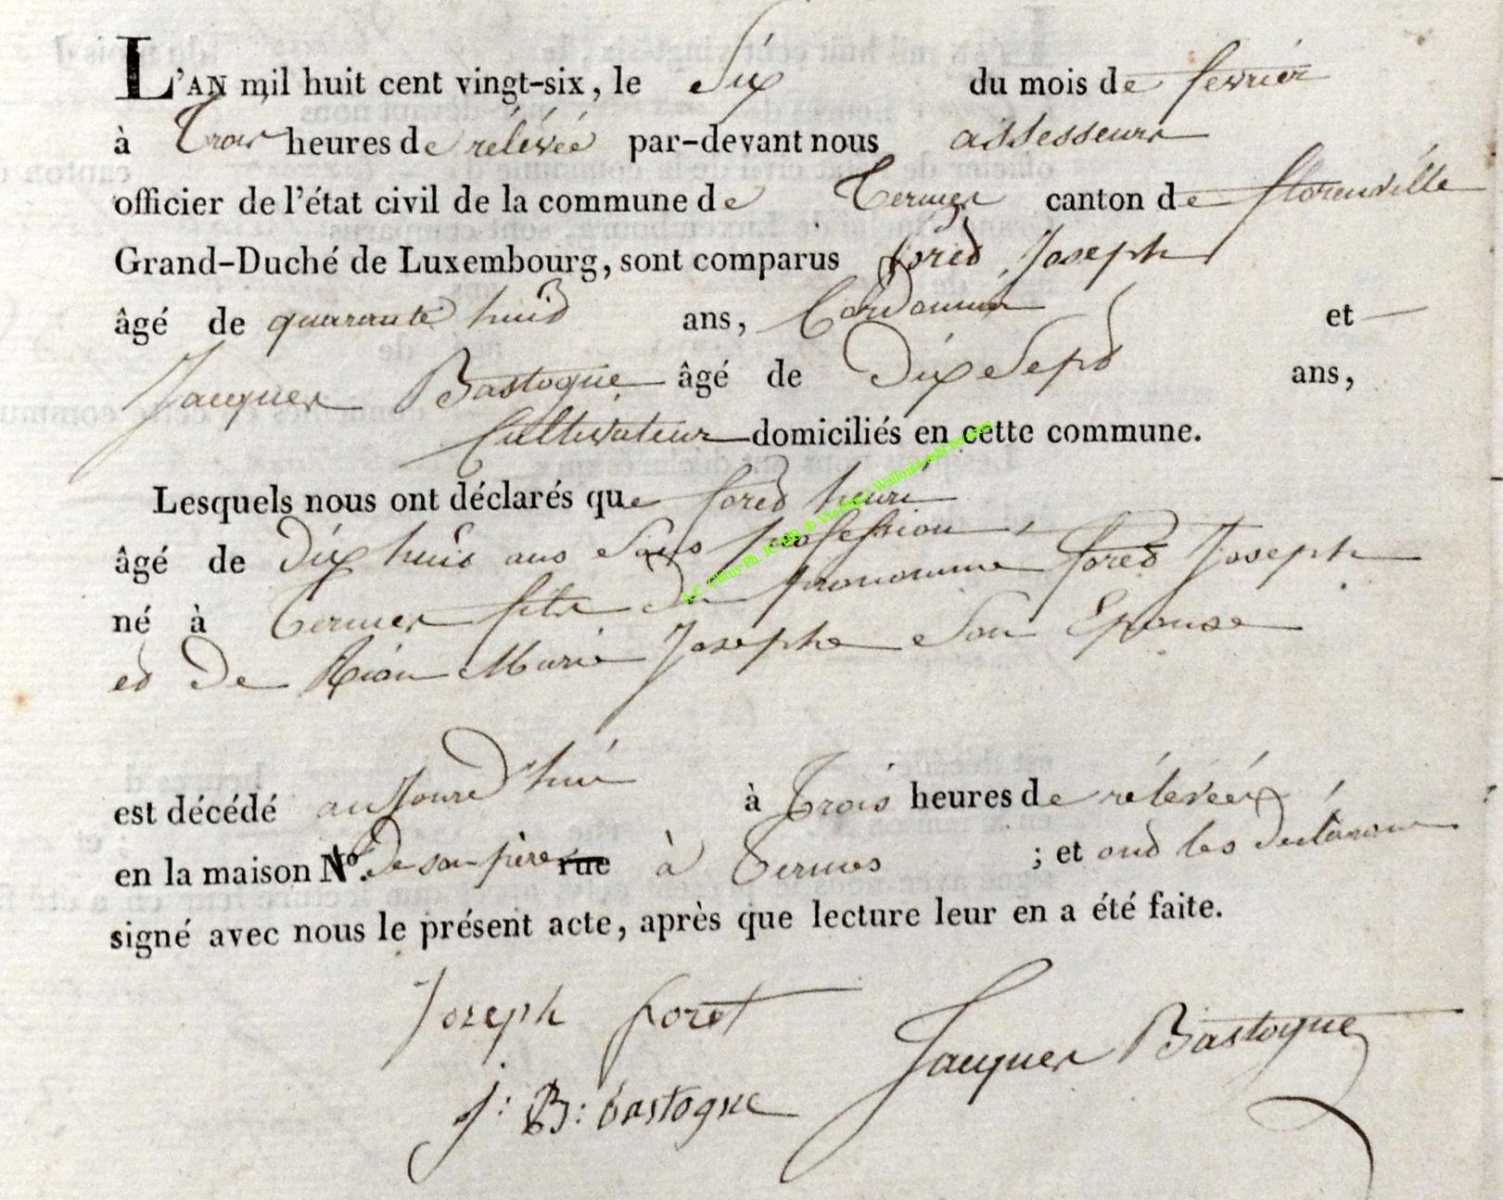 L'AN mil huit cent vingt-six, le Six du mois de fevrier
à Trois heures de rélévée par-devant nous assesseurs
officier de l'état civil de la commune de Termes canton de florenville
Grand-Duché de Luxembourg, sont comparus foret Joseph
âgé de quarante huit ans, Cordonnier et
Jacques Bastogne âgé de Dix Sept ans,
Cultivateur domiciliés en cette commune.
Lesquels nous ont déclarés que foret henri
âgé de Dix huit ans Sans profession
né à Termes fils du foret Joseph
et De Rion Marie Josephe Son Epouse
est décédé aujourd'hui à Trois heures de rélévée
en la maison No. De son père rue à Termes ; et ont les declarans
signé avec nous le présent acte, après que lecture leur en a été faite.
Joseph foret
Jacques Bastogne
J: B: bastogne